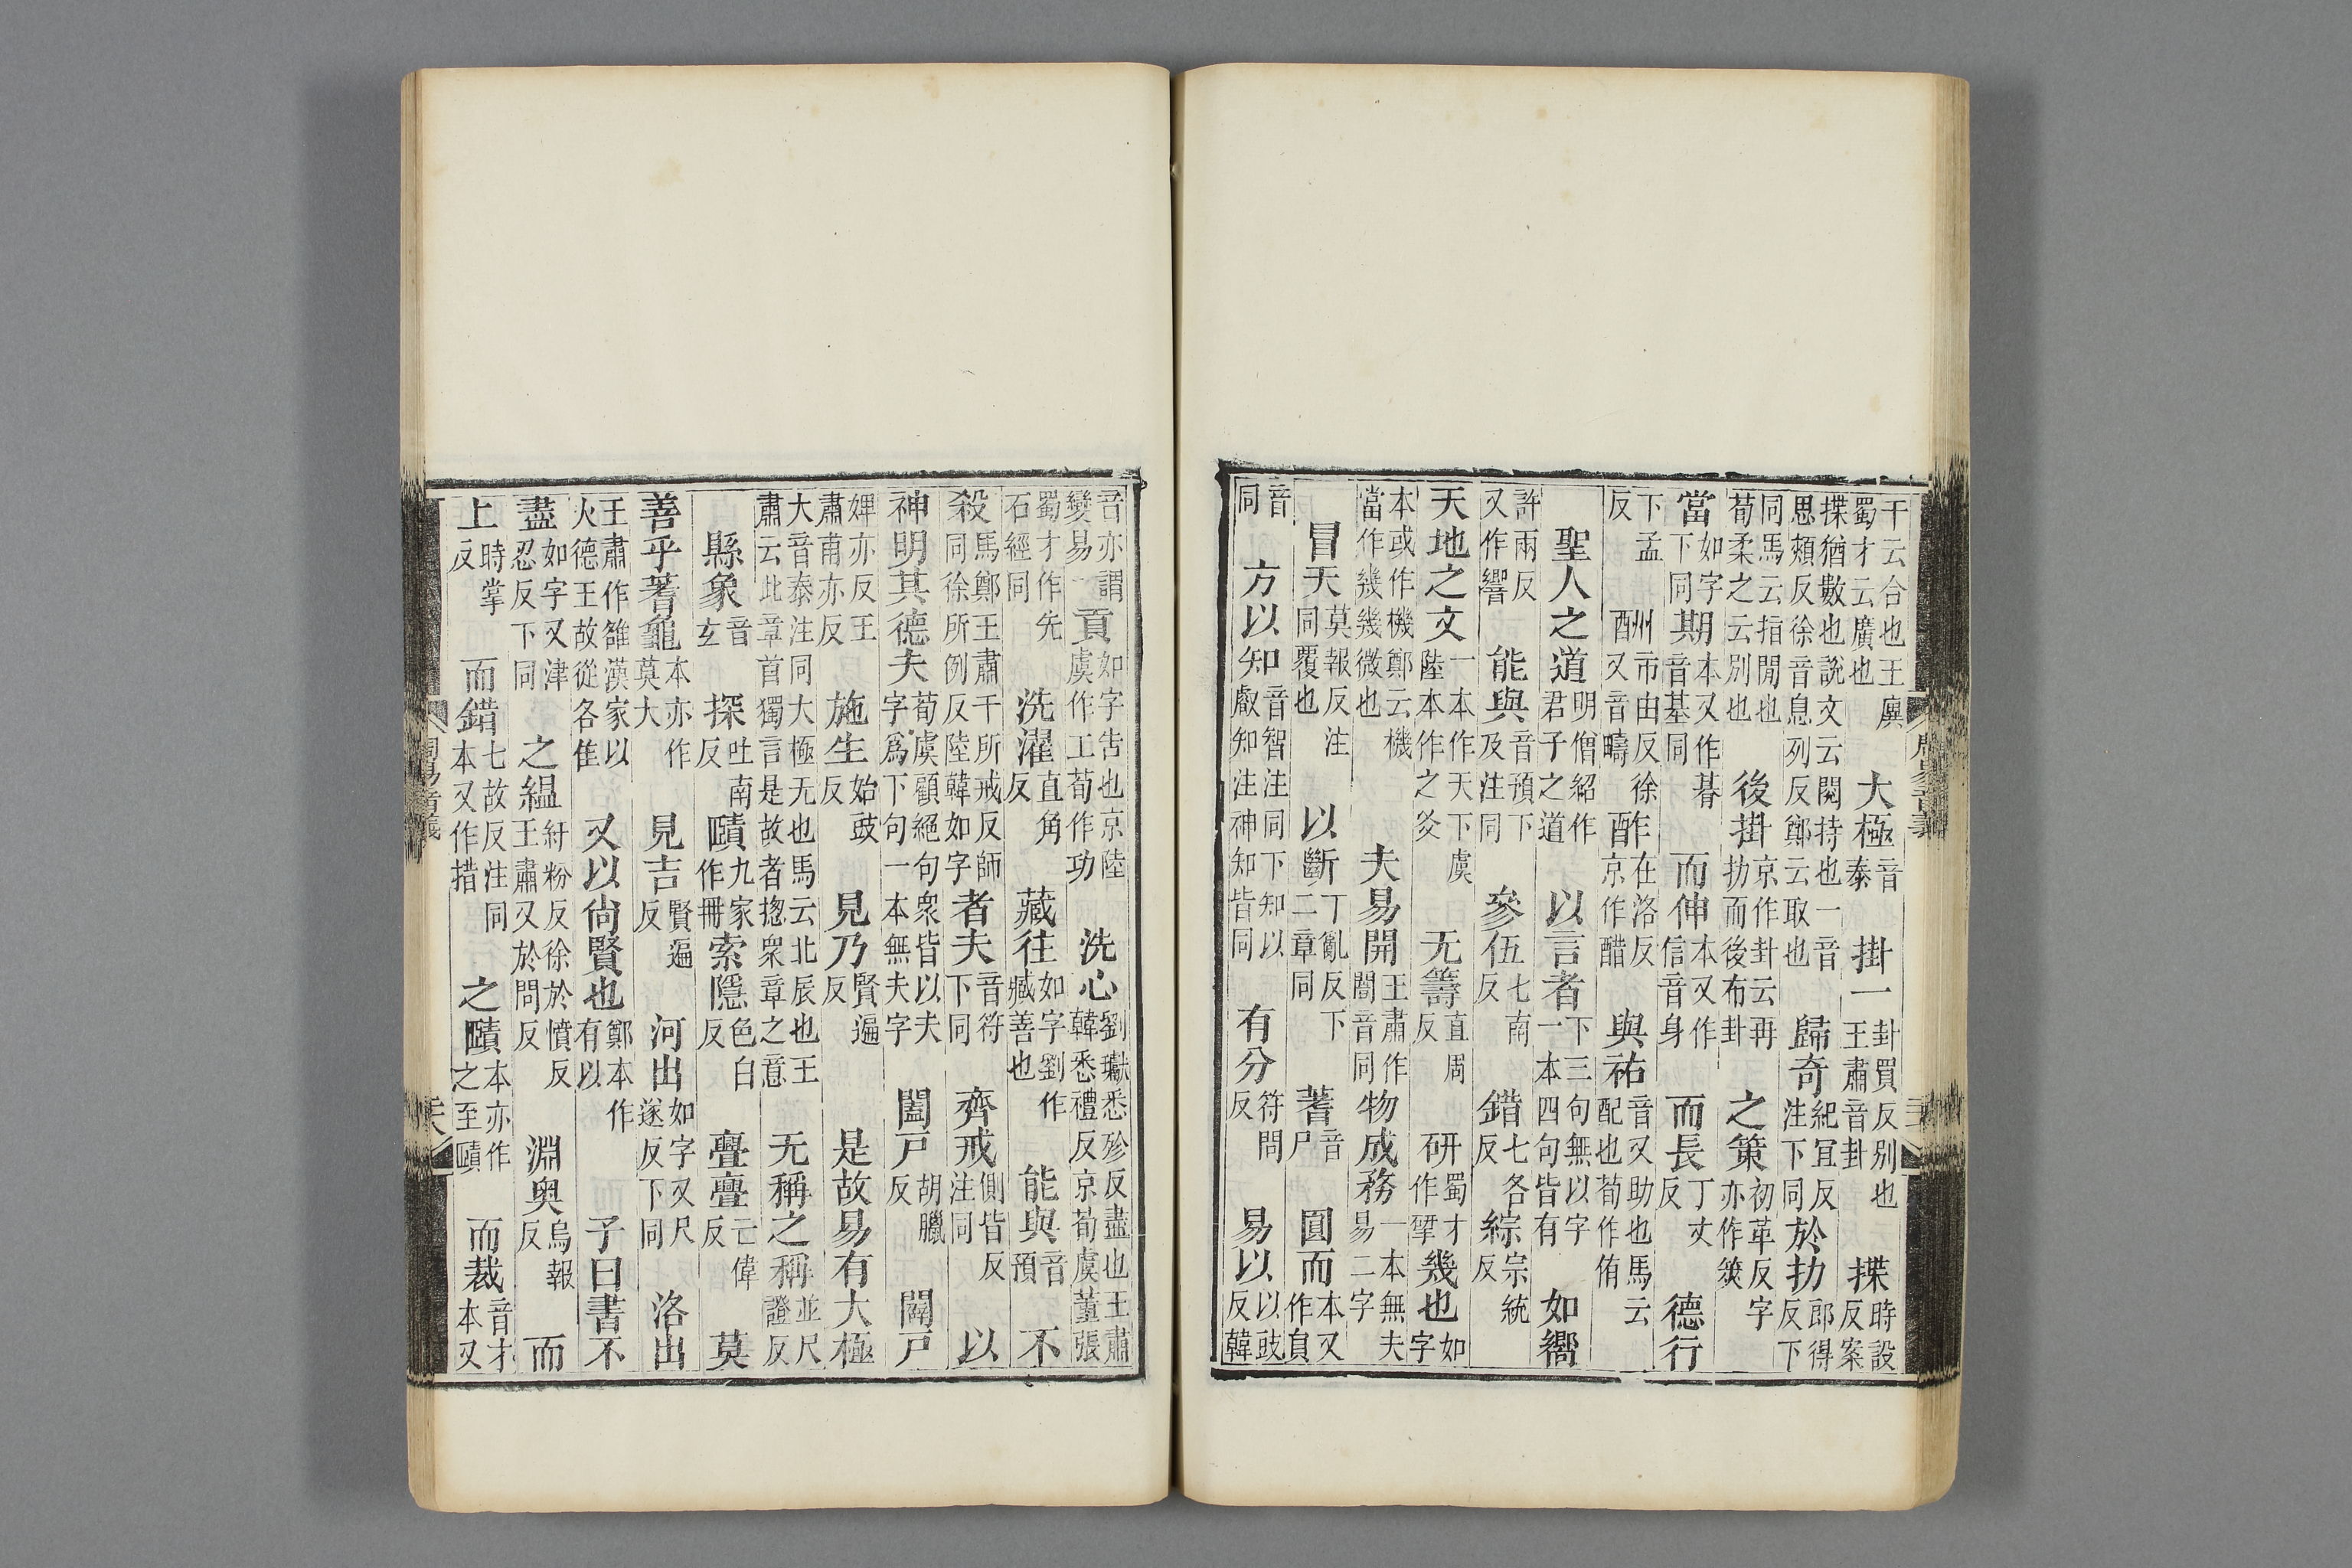 干云合也王廙蜀才云廣也 大極音泰 掛一卦買反别也王肅音卦 揲時設反案
揲猶數也說文云閱持也一音思頰反徐音息列反鄭云取也 歸奇紀宜反注下同 於扐郎得反下
同馬云指閒也荀柔之云别也 後掛京作卦云再扐而後布卦 之策初革反字亦作筴
當如字下同 期本又作朞音基同 而伸本又作信音身 而長丁丈反 德行
下孟反 酬市由反徐又音疇 酢在洛反京作醋 與祐音又助也馬云配也荀作侑
聖人之道明僧紹作君子之道 以言者下三句無以字一本四句皆有 如嚮
許兩反又作響 能與音預下及注同 參伍七南反 錯七各反 綜宗統反
天地之文一本作天下虞陸本作之爻 无籌直周反 研蜀才作揅 幾也如字
本或作機鄭云機當作幾幾微也 夫易開王肅作闓音同 物成務一本無夫易二字
冒天莫報反注同覆也 以斷丁亂反下二章同 蓍音尸 圓而本又作員
音同 方以知音智注同下知以叡知注神知皆同 有分符問反 易以以豉反韓
音亦謂變易 貢如字告也京陸虞作工荀作功 洗心劉瓛悉殄反盡也王肅韓悉禮反京荀虞董張
蜀才作先石經同 洗濯直角反 藏往如字劉作臧善也 能與音預 不
殺馬鄭王肅干所戒反師同徐所例反陸韓如字 者夫音符下同 齊戒側皆反注同 以
神明其德夫荀虞顧絕句衆皆以夫字爲下句一本無夫字 闔戸胡臘反 闢戸
婢亦反王肅甫亦反 施生始豉反 見乃賢遍反 是故易有大極
大音泰注同大極无也馬云北辰也王肅云此章首獨言是故者揔衆章之意 无稱之稱並尺證反
縣象音玄 探吐南反 賾九家作冊 索隱色白反 亹亹亡偉反 莫
善乎蓍龜本亦作莫大 見吉賢遍反 河出如字又尺遂反下同 洛出
王肅作雒漢家以火德王故從各隹 又以尚賢也鄭本作有以 子曰書不
盡如字又津忍反下同 之緼紆粉反徐於憤反王肅又於問反 淵奥烏報反 而
上時掌反 而錯七故反注同本又作措 之賾本亦作之至賾 而裁音才本又
周易音義